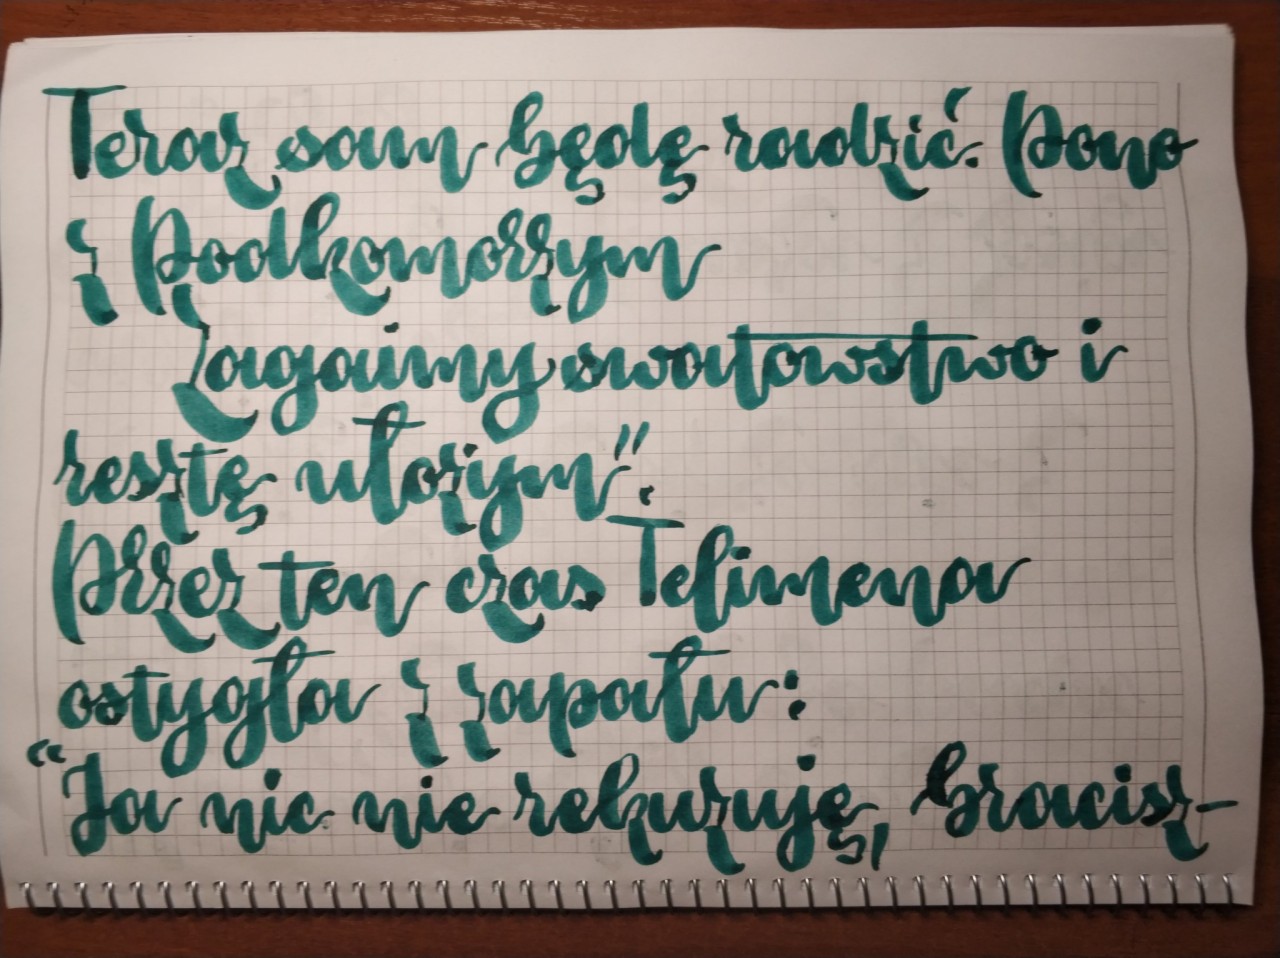 Teraz sam będę radzić. Pono
z Podkomorzym
Zagaimy swatowstwo i
resztę ułożym".
Przez ten czas Telimena
ostygła z zapału:
"Ja nic nie rekuzuję, bracisz-